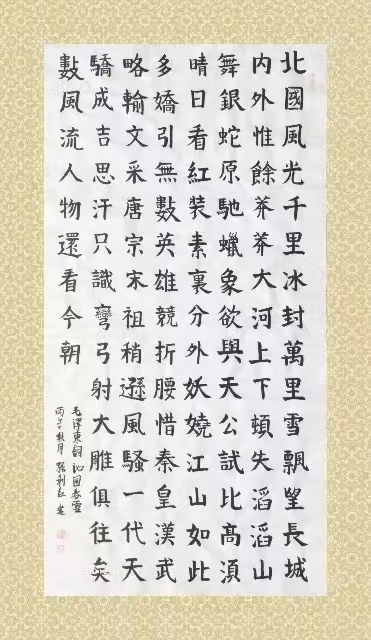 北國風光千里冰封萬里雪飄望長城
内外惟餘莽莽大河上下頓失滔滔山
舞銀蛇原馳蠟象欲與天公試比高須
晴日看紅装素裏分外妖嬈江山如此
多嬌引無數英雄競折腰惜秦皇漢武
略輸文采唐宗宋祖稍遜風騷一代天
驕成吉思汗只識彎弓射大雕俱往矣
數風流人物還看今朝
毛澤東詞沁園春雪
丙秋月張利書